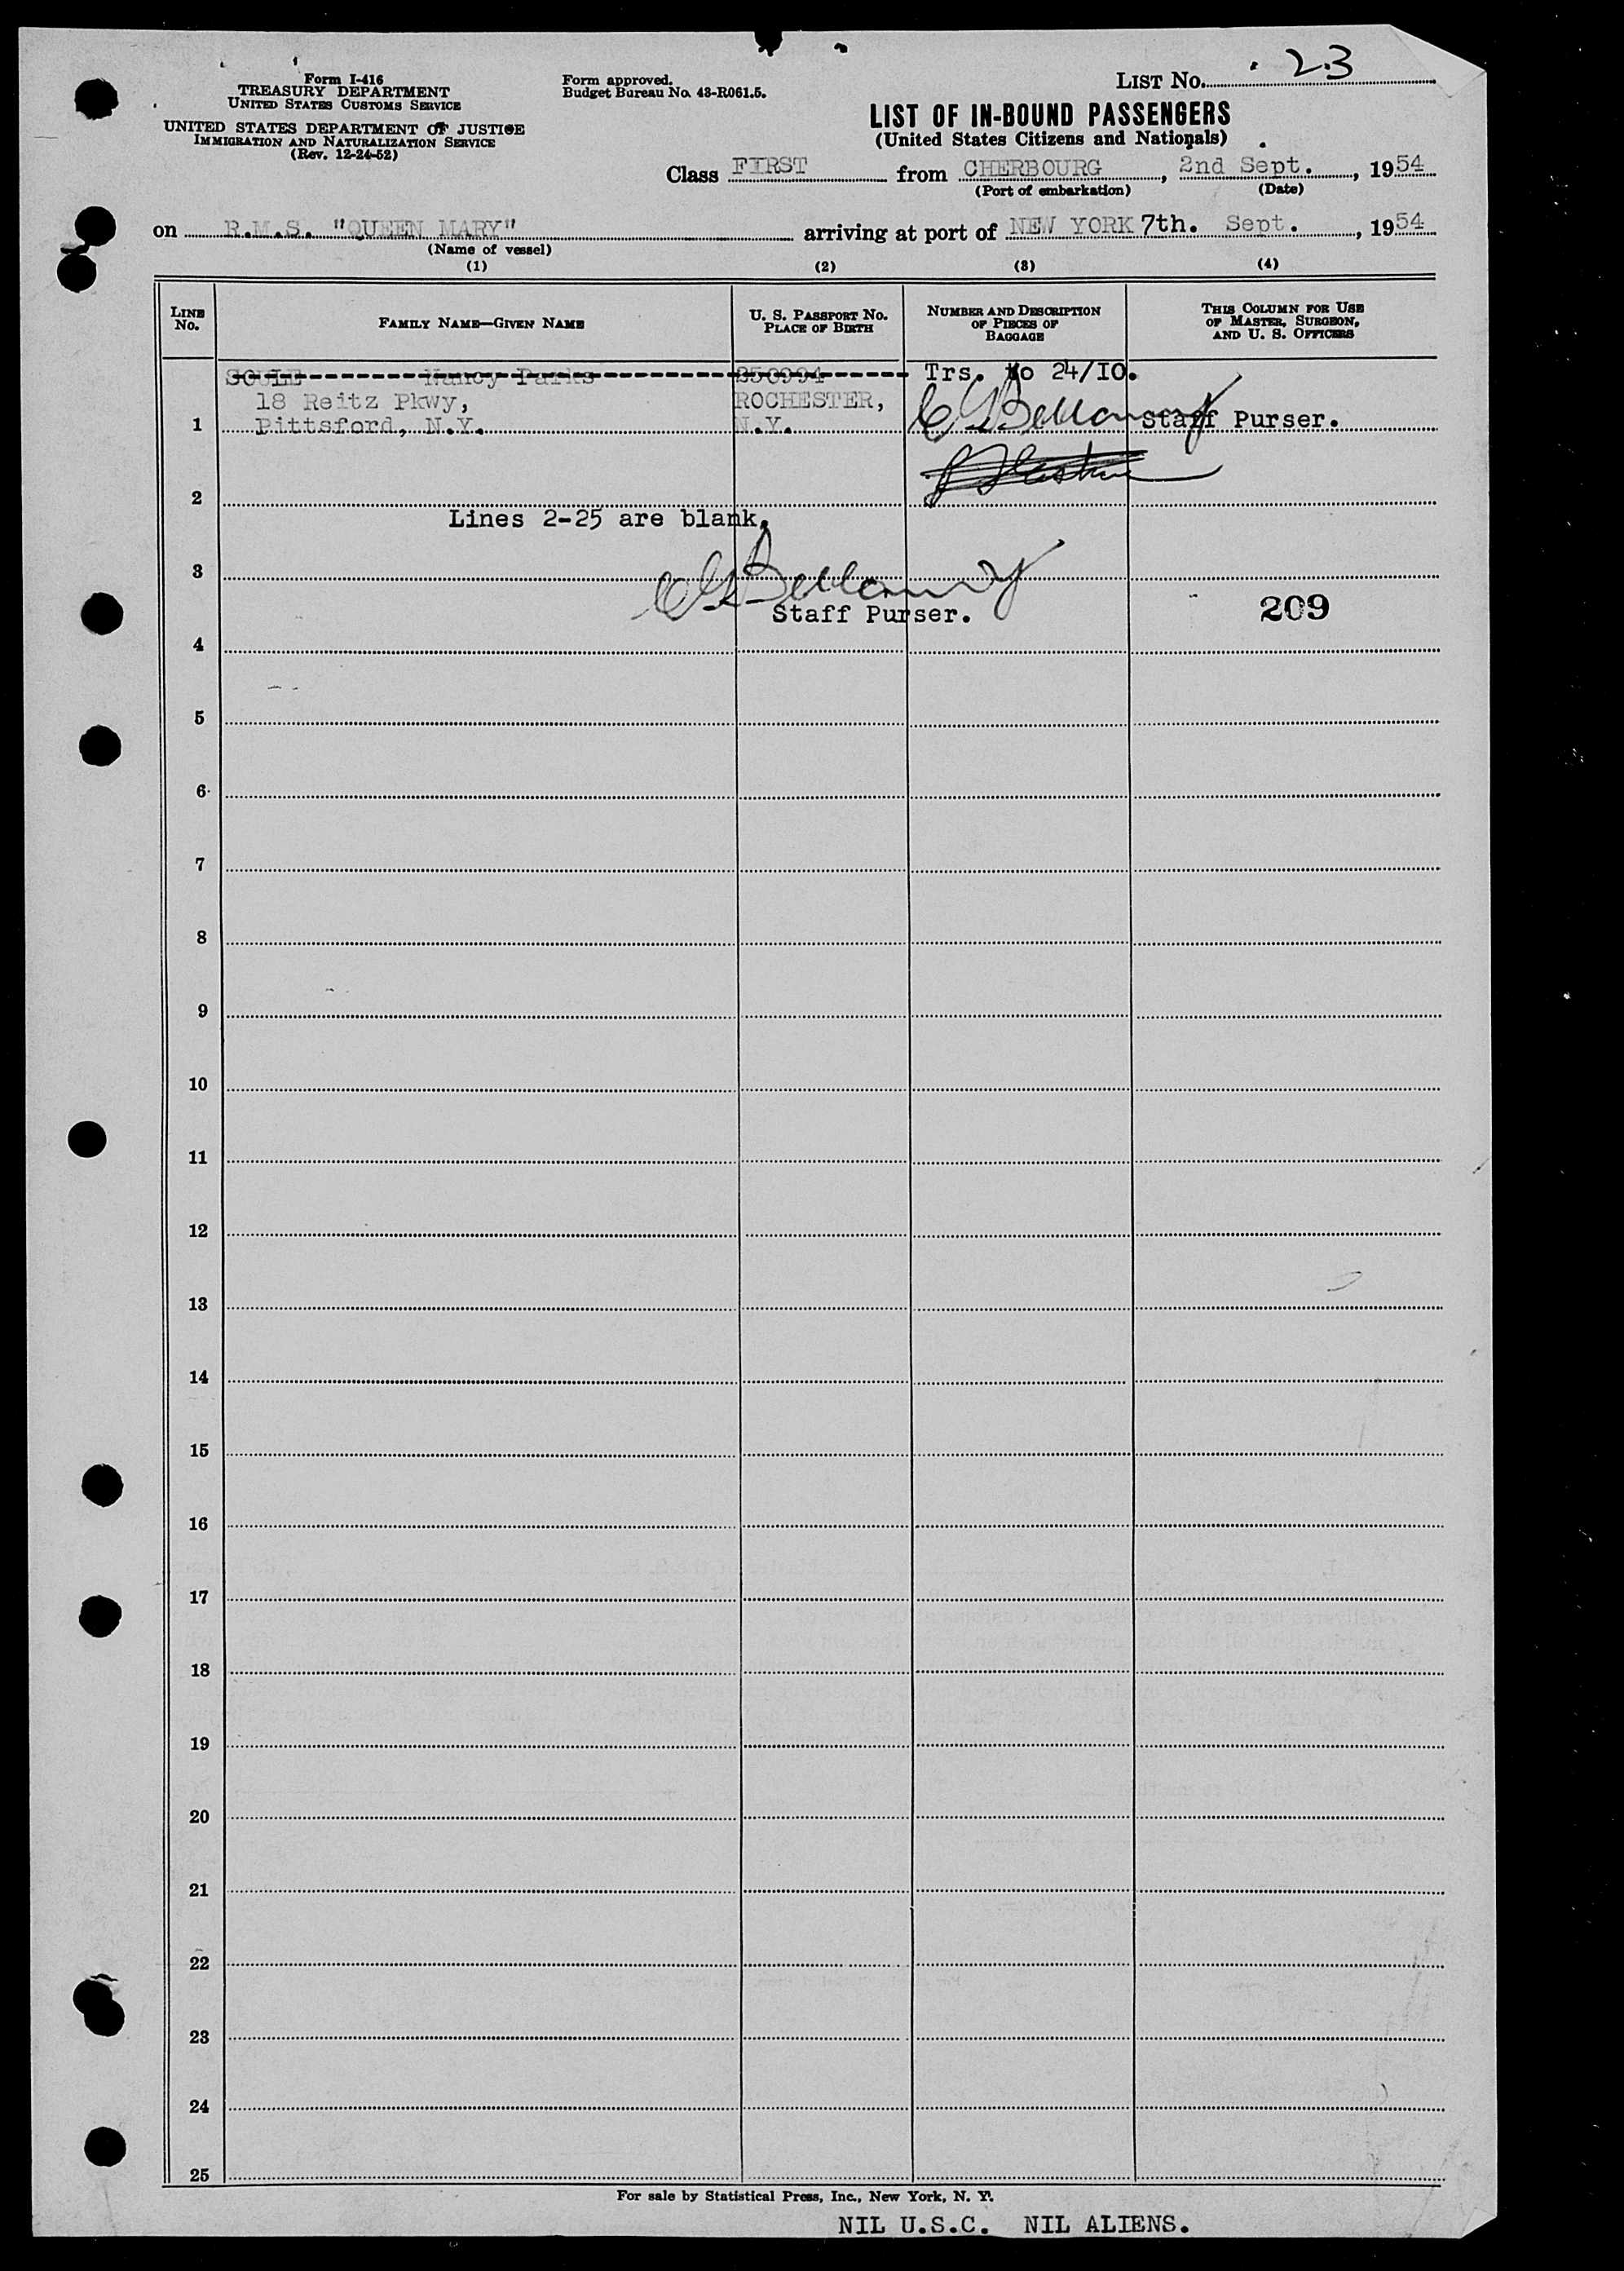 Form I-416
TREASURY DEPARTMENT
UNITED STATES CUSTOMS SERVICE
UNITED STATES DEPARTMENT OF JUSTICE
IMMIGRATION AND NATURALIZATION SERVICE
(Rev. 12-24-52)
Form approved.
Budget Bureau No. 43-R061.5.
LIST No. 23
LIST OF IN-BOUND PASSENGERS
(United States Citizens and Nationals)
Class FIRST from CHERBOURG, 2nd Sept., 1954
(Port of embarkation) (Date)
on R.M.S. "QUEEN MARY" arriving at port of NEW YORK 7th. Sept., 1954
(Name of vessel)
(1) (2) (3) (4)
LINE No. FAMILY NAME—GIVEN NAME U. S. PASSPORT No. PLACE OF BIRTH NUMBER AND DESCRIPTION OF PIECES OF BAGGAGE THIS COLUMN FOR USE OF MASTER, SURGEON, AND U. S. OFFICERS
SOULE Nancy Parks 250994 Trs. to 24/10.
18 Reitz Pkwy, ROCHESTER,
1 Pittsford, N.Y. N.Y. C G Bellamy Staff Purser.
2
Lines 2-25 are blank.
3 C G Bellamy
Staff Purser. 209
4
5
6
7
8
9
10
11
12
13
14
15
16
17
18
19
20
21
22
23
24
25
For sale by Statistical Press, Inc., New York, N. Y.
NIL U.S.C. NIL ALIENS.